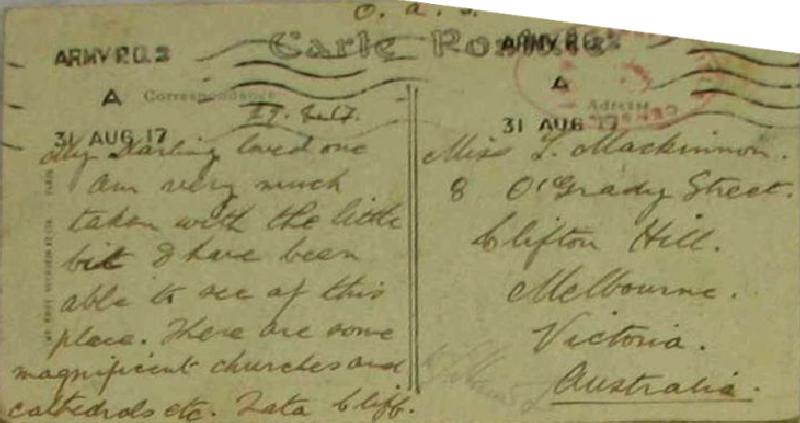 O. A. S.
Carte Postale
ARMY P.O. 3
A
31 AUG 17
ARMY P.O. 3
A
31 AUG 17
Correspondance
Adresse
29.8.17.
My Darling loved one
Am very much
taken with the little
bit I have been
able to see of this
place. There are some
magnificent churches and
cathedrals etc. Tata Cliff.
Miss L. Mackinnon.
8 O'Grady Street.
Clifton Hill.
Melbourne.
Victoria.
Australia.